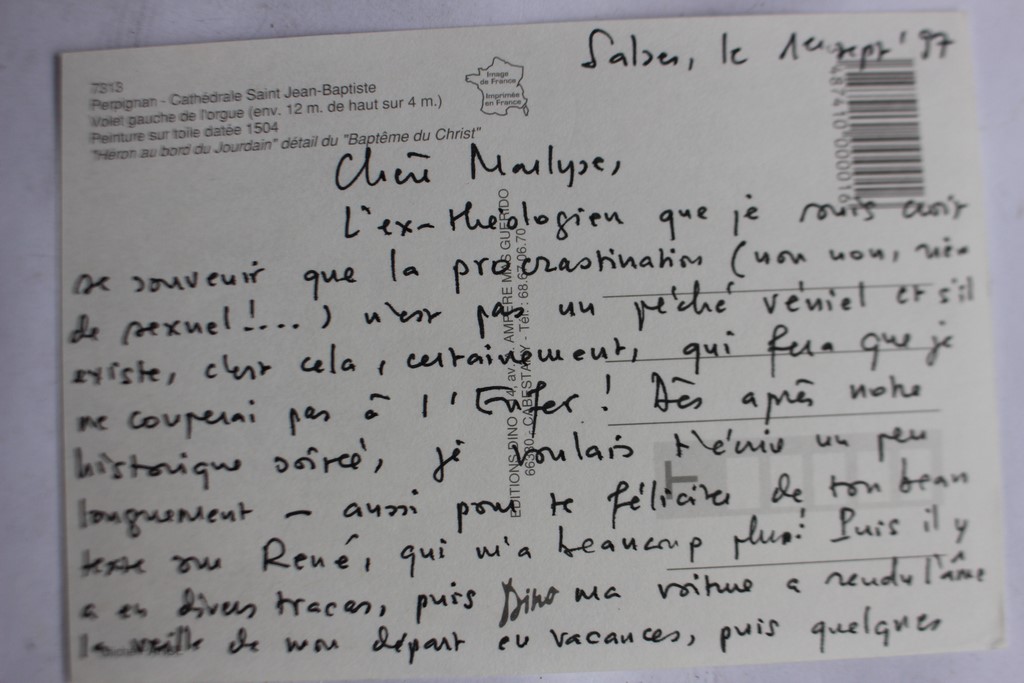 Salses, le 1er sept' 97
7313
Perpignan - Cathédrale Saint Jean-Baptiste
Volet gauche de l'orgue (env. 12 m. de haut sur 4 m.)
Peinture sur toile datée 1504
"Héron au bord du Jourdain" détail du "Baptême du Christ"
Image
de France
Imprimée
en France
Chère Marlyse,
L'ex-théologien que je suis doit
se souvenir que la procrastination (non non, rien
de sexuel !....) n'est pas un péché véniel et s'il
existe, c'est cela, certainement, qui fera que je
ne couperai pas à l'Enfer ! Dès après notre
historique soirée, je voulais t'écrire un peu
longuement – aussi pour te féliciter de ton beau
texte sur René, qui m'a beaucoup plu ! Puis il y
a eu divers tracas, puis Dino ma voiture a rendu l'âme
la veille de mon départ en vacances, puis quelques
EDITIONS DINO 4, av. AMPERE MAS GUERIDO
66330 - CABESTANY - Tél. : 68.67.06.70